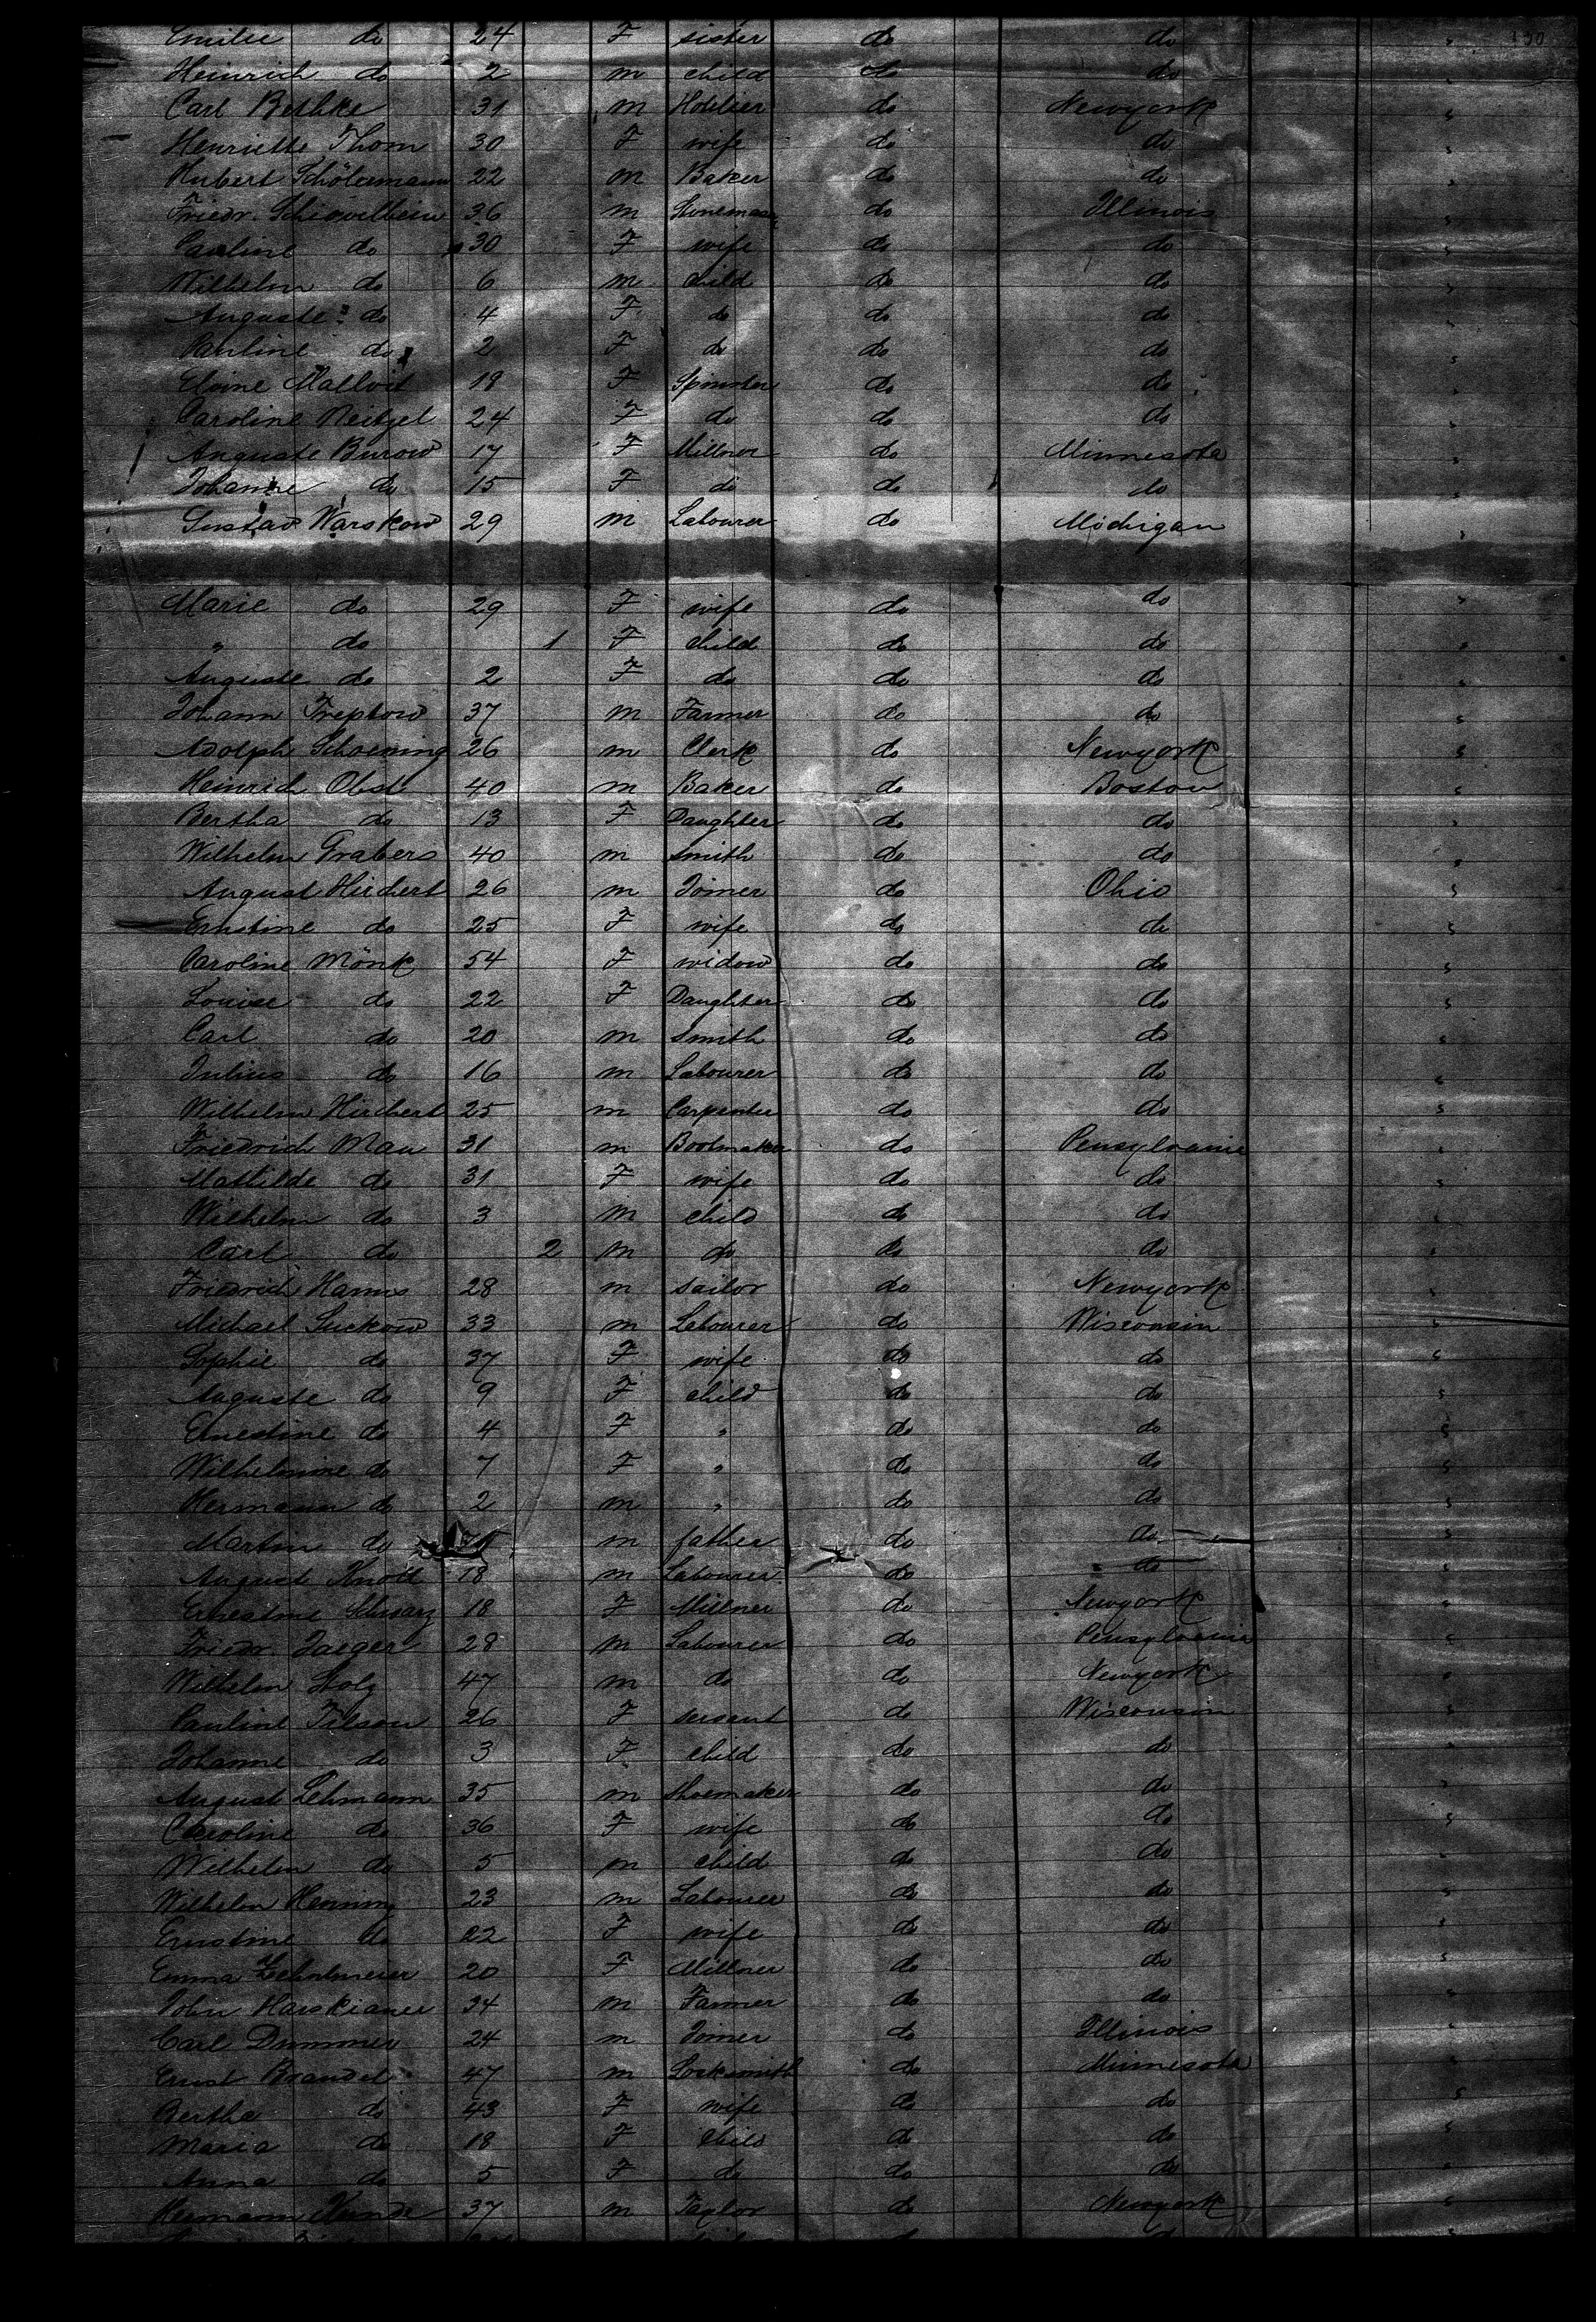 Emilie do 24 F sister do do
Heinrich do 2 m child do do
Carl Bethke 31 m do Newyork
Henriette Thom 30 F wife do do
Hubert Schölermann 22 m Baker do do
Friedr. Schiewelbein 36 m Stonemason do Illinois
Pauline do 30 F wife do do
Wilhelm do 6 m child do do
Auguste do 4 F do do do
Pauline do 2 F do do do
19 F Spinster do do
Caroline Neitzel 24 F do do do
Auguste Burow 17 F Millner do Minnesota
Johanne do 15 F do do do
Gustav Warskow 29 m Labourer do Michigan
Marie do 29 F wife do do
" do 1 F child do do
Auguste do 2 F do do do
Johann Treptow 37 m Farmer do do
Adolph Schoening 26 m Clerk do Newyork
Heinrich Obst 40 m Baker do Boston
Bertha do 13 F Daughter do do
Wilhelm Grabers 40 m smith do do
August Hichert 26 m Joiner do Ohio
Ernstine do 25 F wife do do
Caroline Mönk 54 F widow do do
Louise do 22 F Daughter do do
Carl do 20 m smith do do
Julius do 16 m Labourer do do
Wilhelm Hichert 25 m Carpenter do do
Friedrich Mau 31 m Bootmaker do Pensylvania
Mathilde do 31 F wife do do
Wilhelm do 3 m child do do
Carl do 2 m do do do
Friedrich Harms 28 m sailor do Newyork
Michael Suckow 33 m Labourer do Wisconsin
Sophie do 37 F wife do do
Auguste do 9 F child do do
Ernestine do 4 F " do do
Wilhelmine do 7 F " do do
Hermann do 2 m " do do
Martin do m father do do
August Knoll 18 m Labourer do do
Ernestine Schwarz 18 F Millner do Newyork
Friedr. Jaeger 28 m Labourer do Pensylvania
Wilhelm Stolz 47 m do do Newyork
Pauline Tilson 26 F servant do Wisconsin
Johanne do 3 F child do do
August Lehmann 35 m shoemaker do do
Caroline do 36 F wife do do
Wilhelm do 5 m child do do
Wilhelm Henning 23 m Labourer do do
Ernstine do 22 F wife do do
Emma 20 F Millner do do
John 34 m Farmer do do
Carl Dummer 24 m Joiner do Illinois
Ernst Brandel 47 m Locksmith do Minnesota
Bertha do 43 F wife do do
Maria do 18 F child do do
Anna do 5 F do do do
Hermann Kunde 37 m Taylor do Newyork